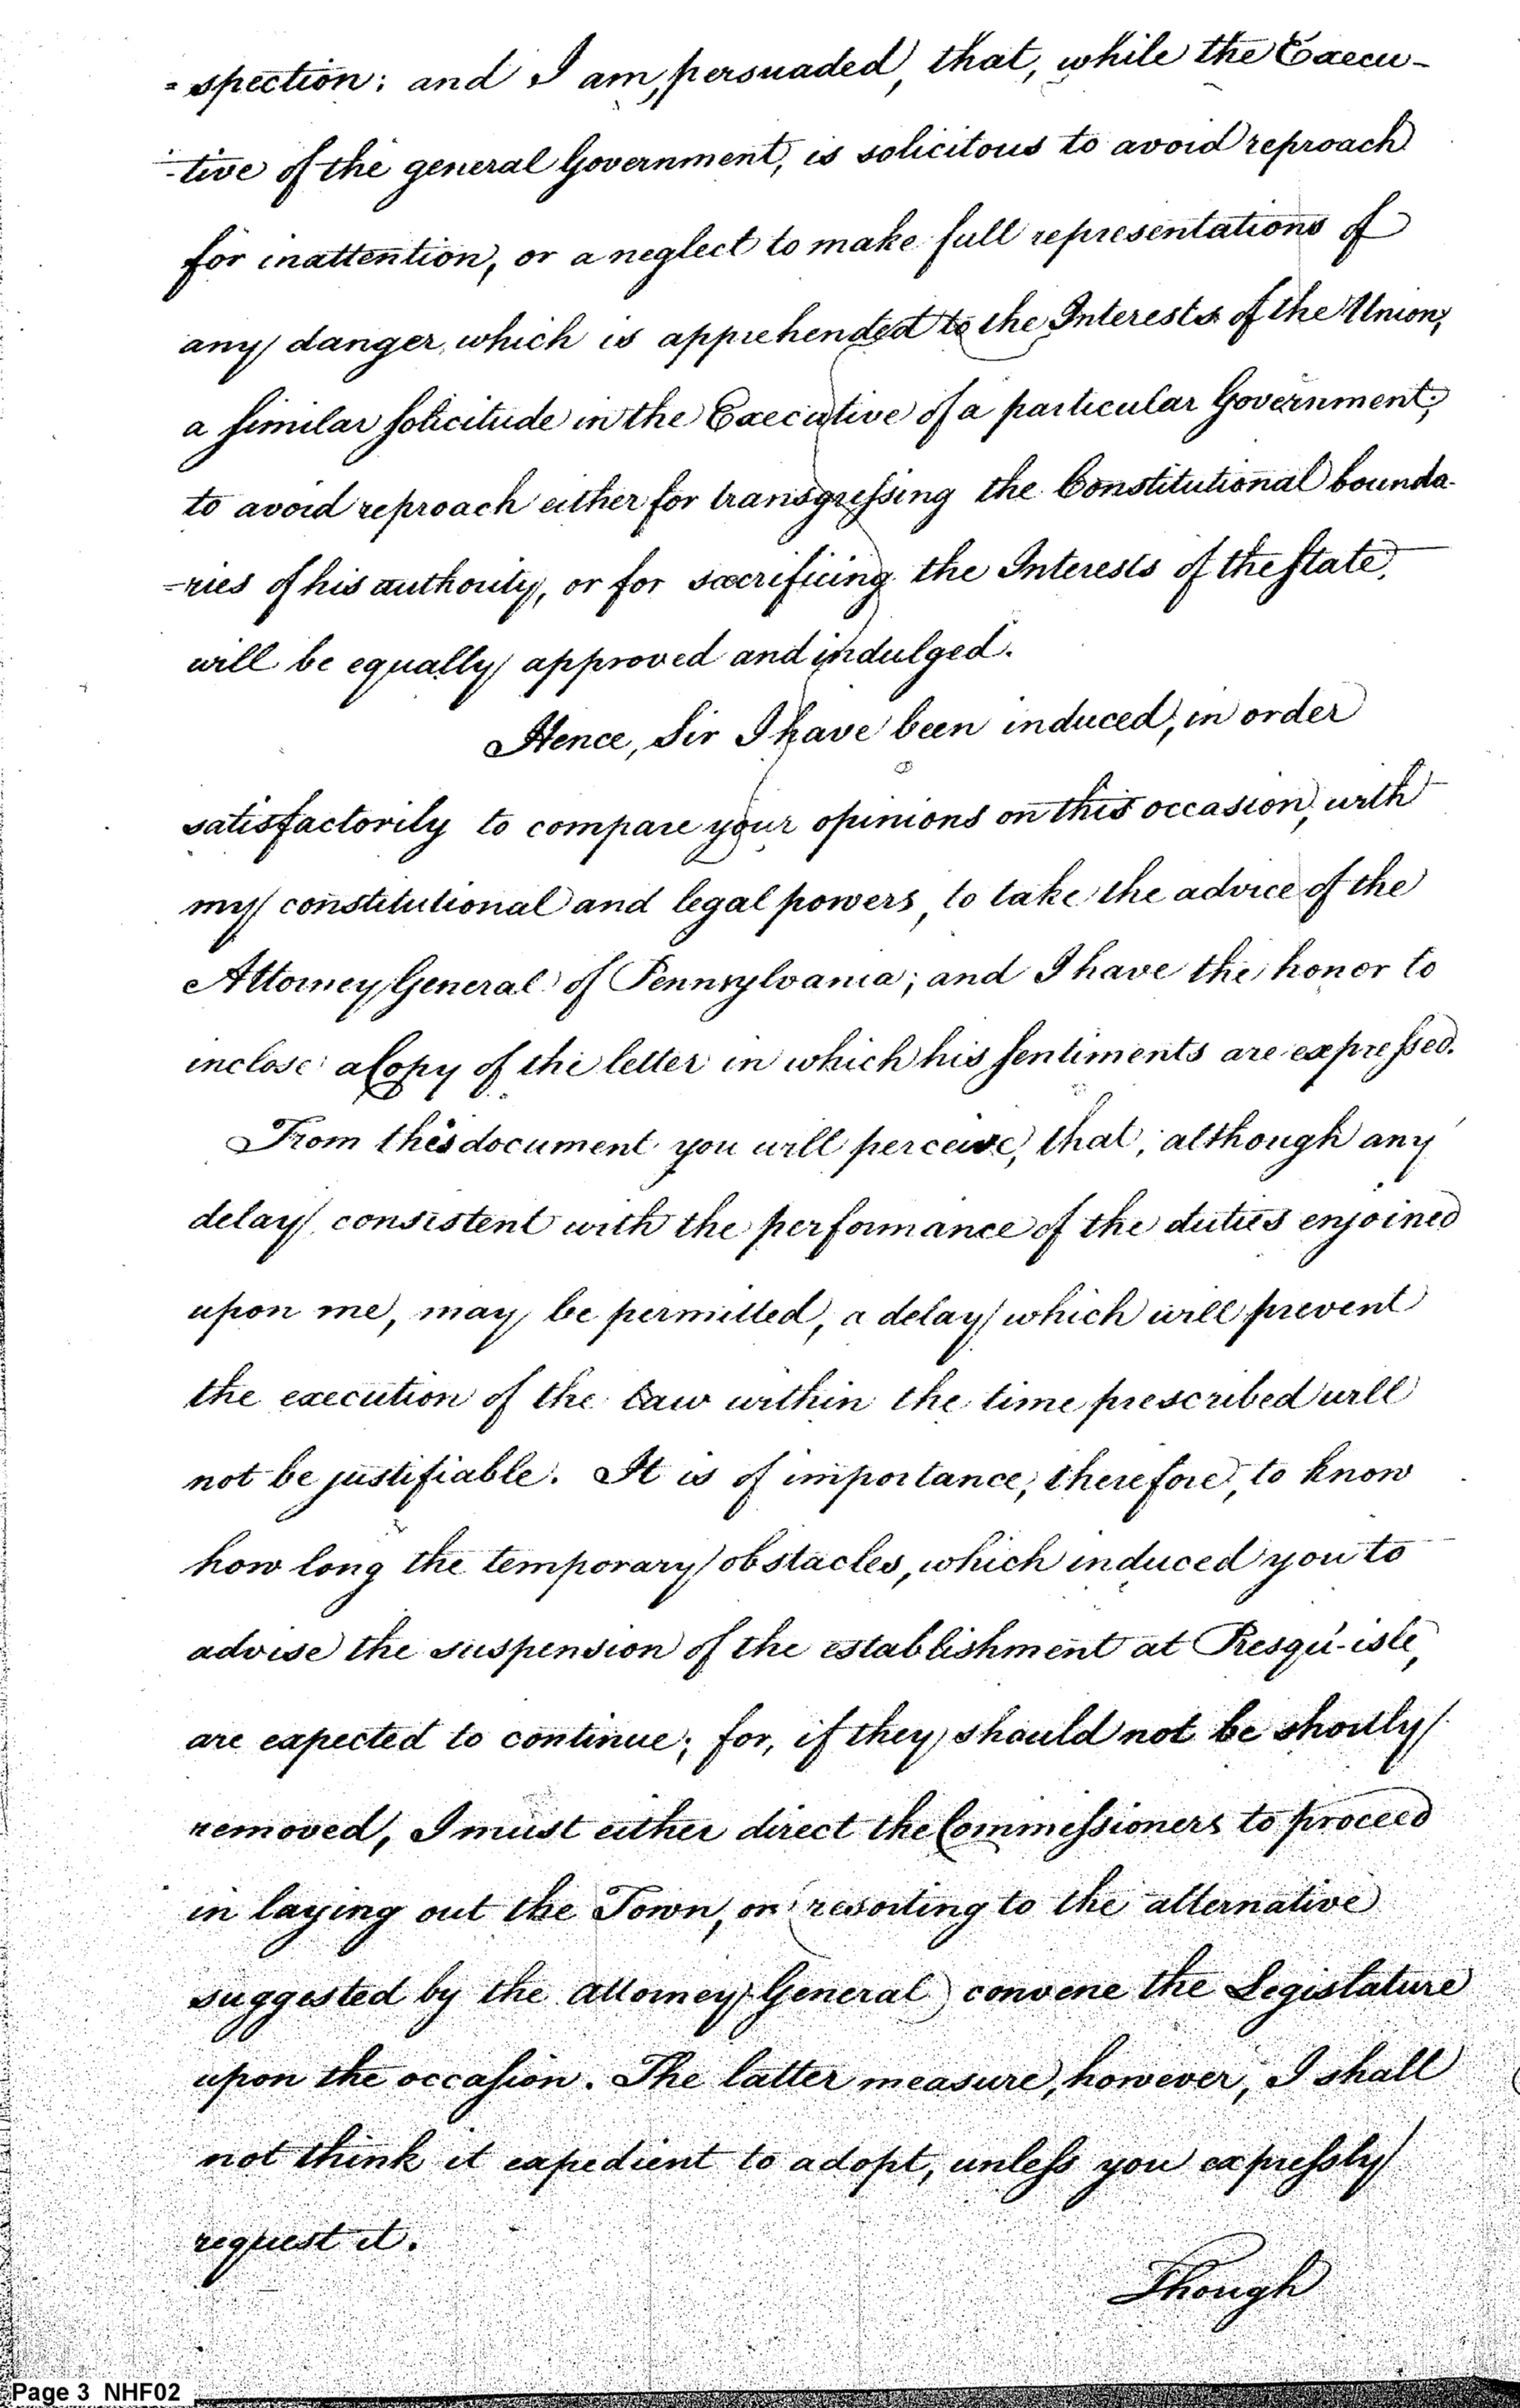 =spection: and I am, persuaded, that, while the Execu-
-tive of the general Government, is solicitous to avoid reproach
for inattention, or a neglect to make full representations of
any danger, which is apprehended to the Interests of the Union,
a similar solicitude in the Executive of a particular Government;
to avoid reproach either for transgressing the Constitutional bounda-
-ries of his authority, or for sacrificing the Interests of the State,
will be equally approved and indulged.
Hence, Sir I have been induced, in order
satisfactorily to compare your opinions on this occasion, with
my constitutional and legal powers, to take the advice of the
Attorney General of Pennsylvania; and I have the honor to
inclose a Copy of the letter in which his sentiments are expressed.
From this document you will perceive, that, although any
delay consistent with the performance of the duties enjoined
upon me, may be permitted, a delay which will prevent
the execution of the Law within the time prescribed will
not be justifiable. It is of importance, therefore, to know
how long the temporary obstacles, which induced you to
advise the suspension of the establishment at Presqu'-isle,
are expected to continue; for, if they should not be shortly
removed, I must either direct the Commissioners to proceed
in laying out the Town, or (resorting to the alternative
suggested by the Attorney General) convene the Legislature
upon the occasion. The latter measure, however, I shall
not think it expedient to adopt, unless you expressly
request it.
Though
Page 3 NHF02